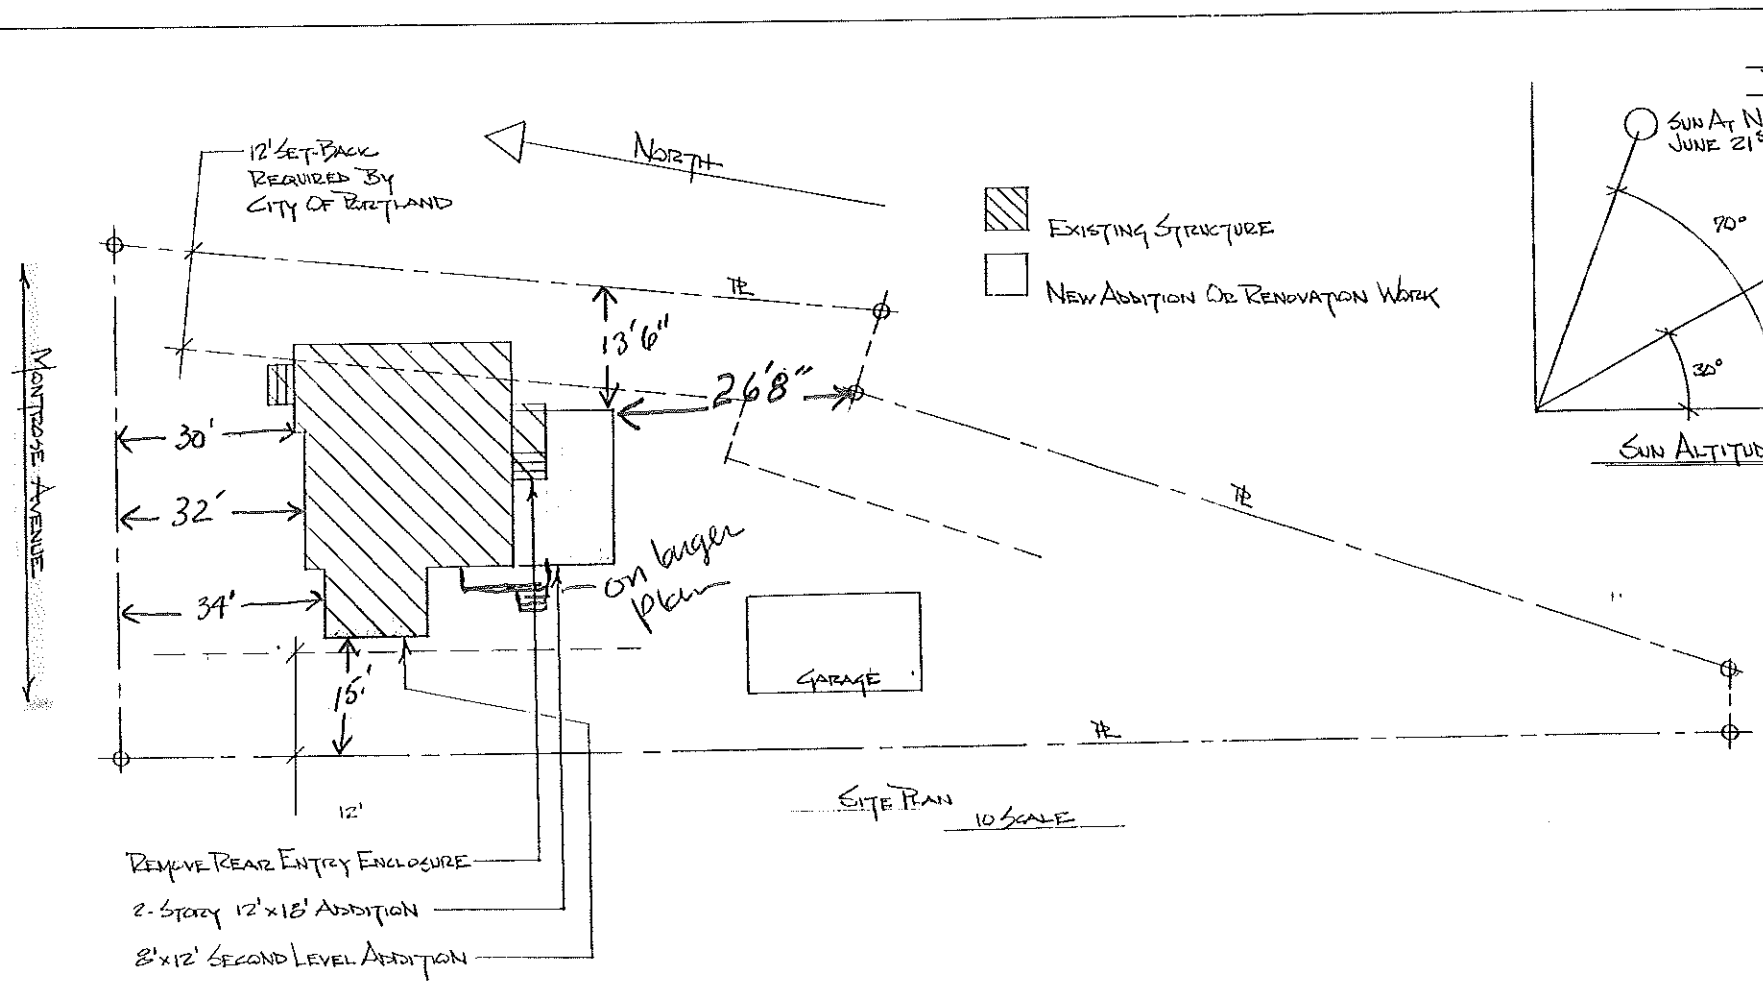 12' SET-BACK
REQUIRED BY
CITY OF PORTLAND
NORTH
EXISTING STRUCTURE
NEW ADDITION OR RENOVATION WORK
SUN AT N
JUNE 21S
70°
30°
SUN ALTITUD
MONTROSE AVENUE
PL
13'6"
26'8"
30'
32'
34'
15'
on larger
plan
PL
GARAGE
PL
12'
SITE PLAN
10 SCALE
REMOVE REAR ENTRY ENCLOSURE
2-STORY 12'x18' ADDITION
8'x12' SECOND LEVEL ADDITION